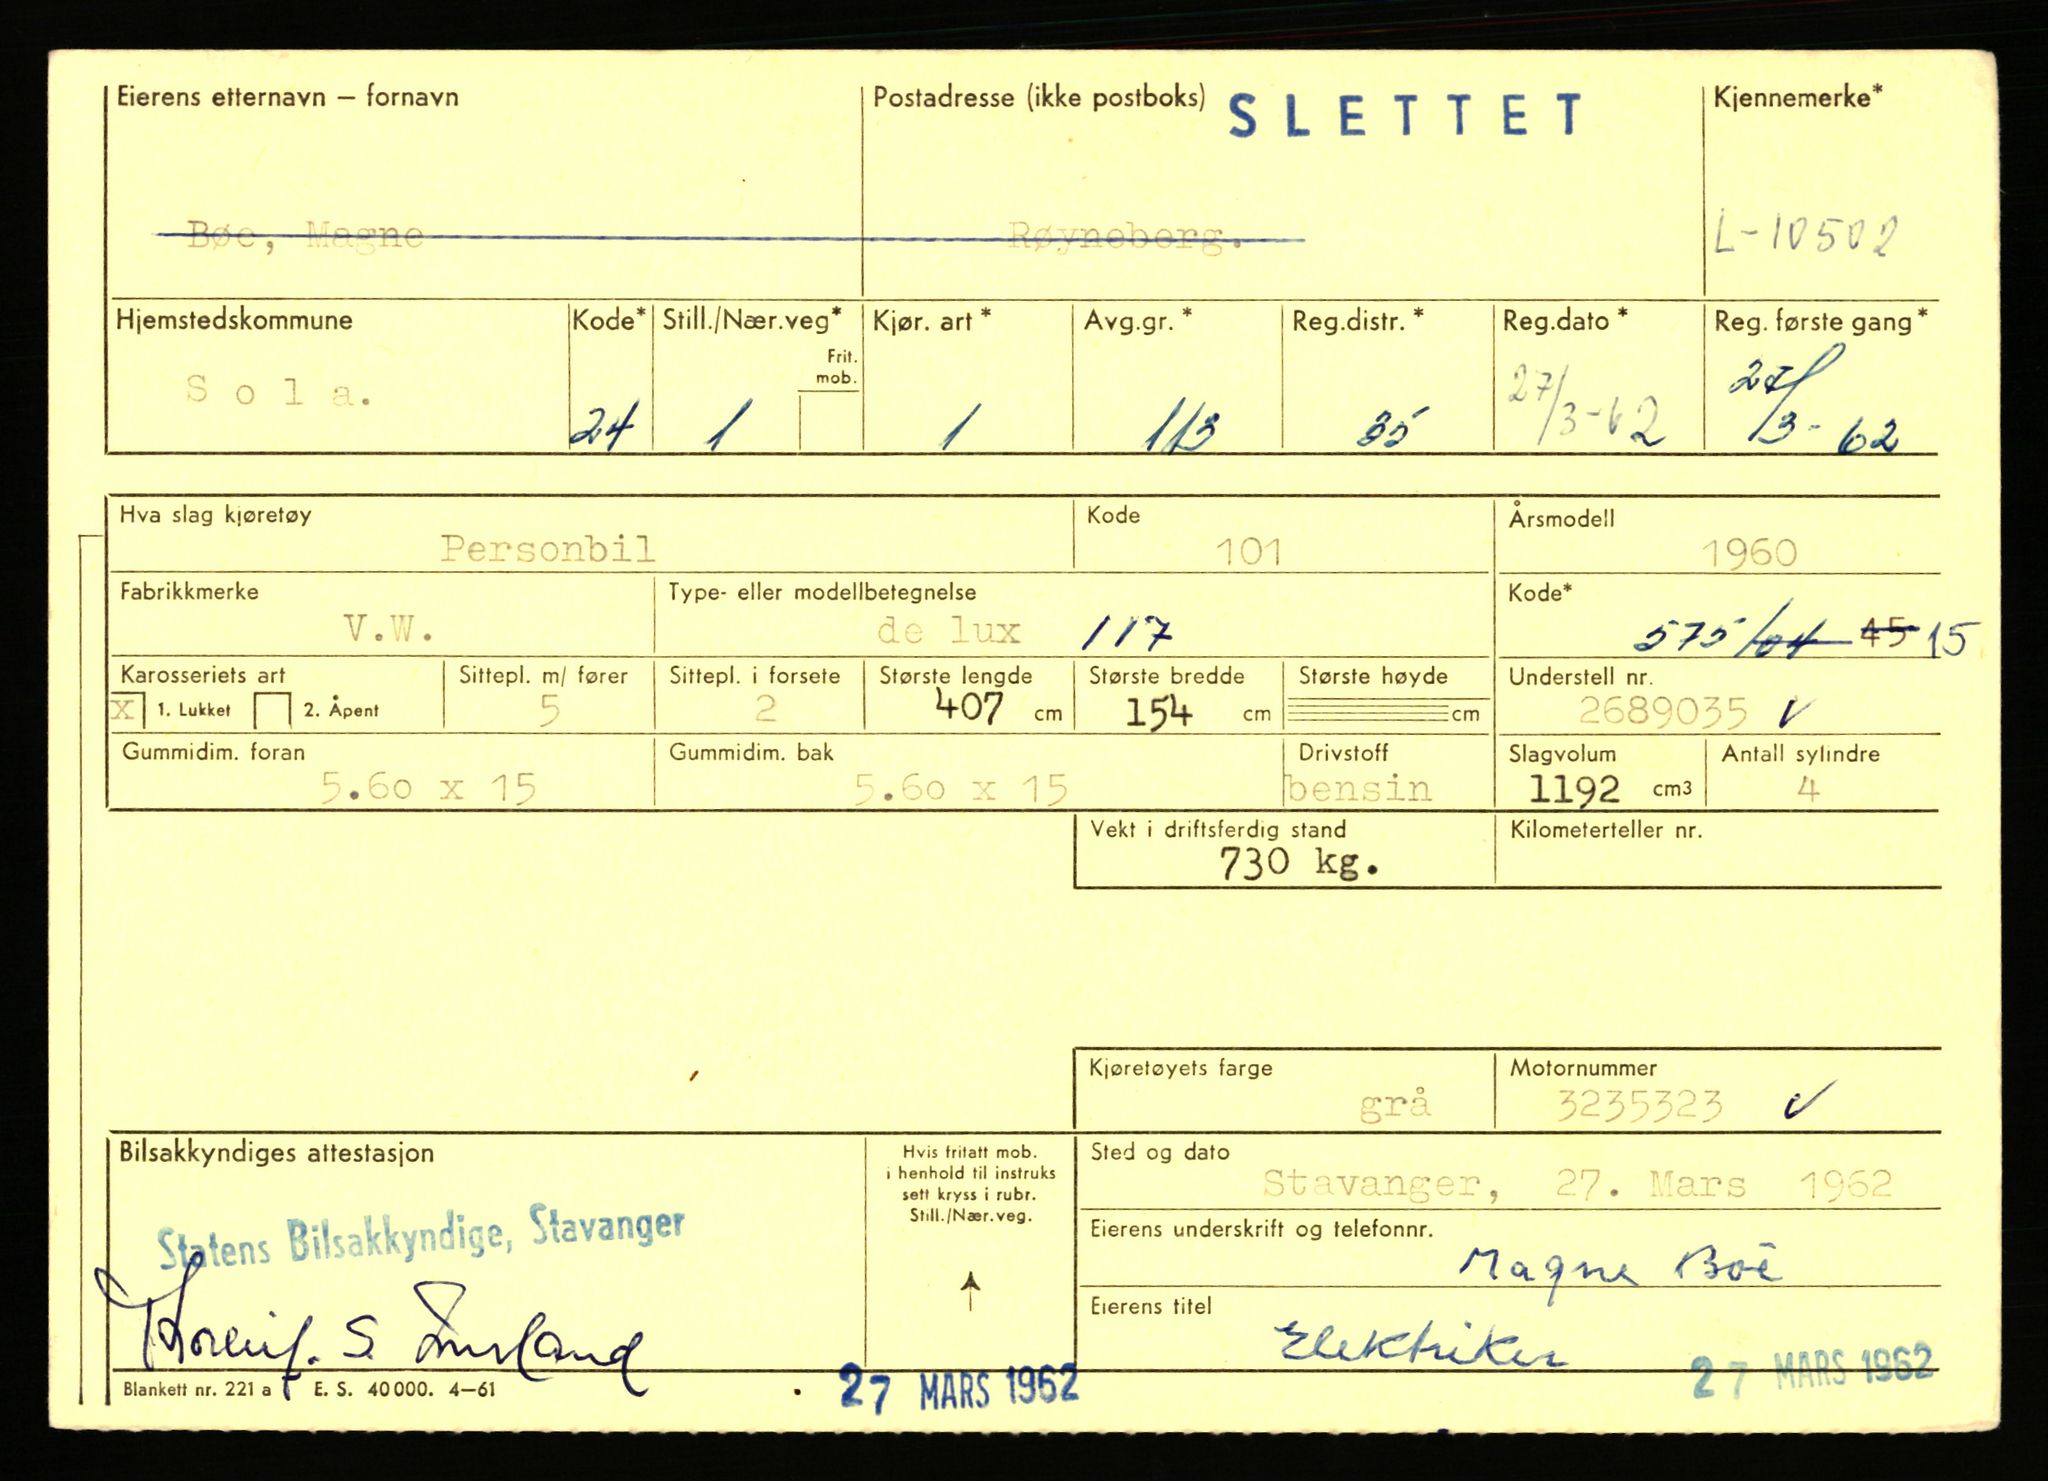 Eierens etternavn – fornavn Postadresse (ikke postboks) SLETTET Kjennemerke*
Bøe, Magne Røyneberg. L-10502
Hjemstedskommune Kode* Still./Nær.veg* Kjør. art * Avg.gr. * Reg.distr. * Reg.dato * Reg. første gang *
Frit.
mob.
Sola. 24 1 1 113 35 27/3-62 27/3-62
Hva slag kjøretøy Kode Årsmodell
Personbil 101 1960
Fabrikkmerke Type- eller modellbetegnelse Kode*
V.W. de lux 117 575/04 45 15
Karosseriets art Sittepl. m/ fører Sittepl. i forsete Største lengde Største bredde Største høyde Understell nr.
X 1. Lukket 2. Åpent 5 2 407 cm 154 cm cm 2689035 ✓
Gummidim. foran Gummidim. bak Drivstoff Slagvolum Antall sylindre
5.60 x 15 5.60 x 15 bensin 1192 cm3 4
Vekt i driftsferdig stand Kilometerteller nr.
730 kg.
Kjøretøyets farge Motornummer
grå 3235323 ✓
Bilsakkyndiges attestasjon Hvis fritatt mob.
i henhold til instruks
sett kryss i rubr.
Still./Nær.veg.
Sted og dato
Stavanger, 27. Mars 1962
Statens Bilsakkyndige, Stavanger
Eierens underskrift og telefonnr.
Magne Boe
Eierens titel
Elektriker
S.
Blankett nr. 221 a E. S. 40000. 4–61 27 MARS 1962 27 MARS 1962